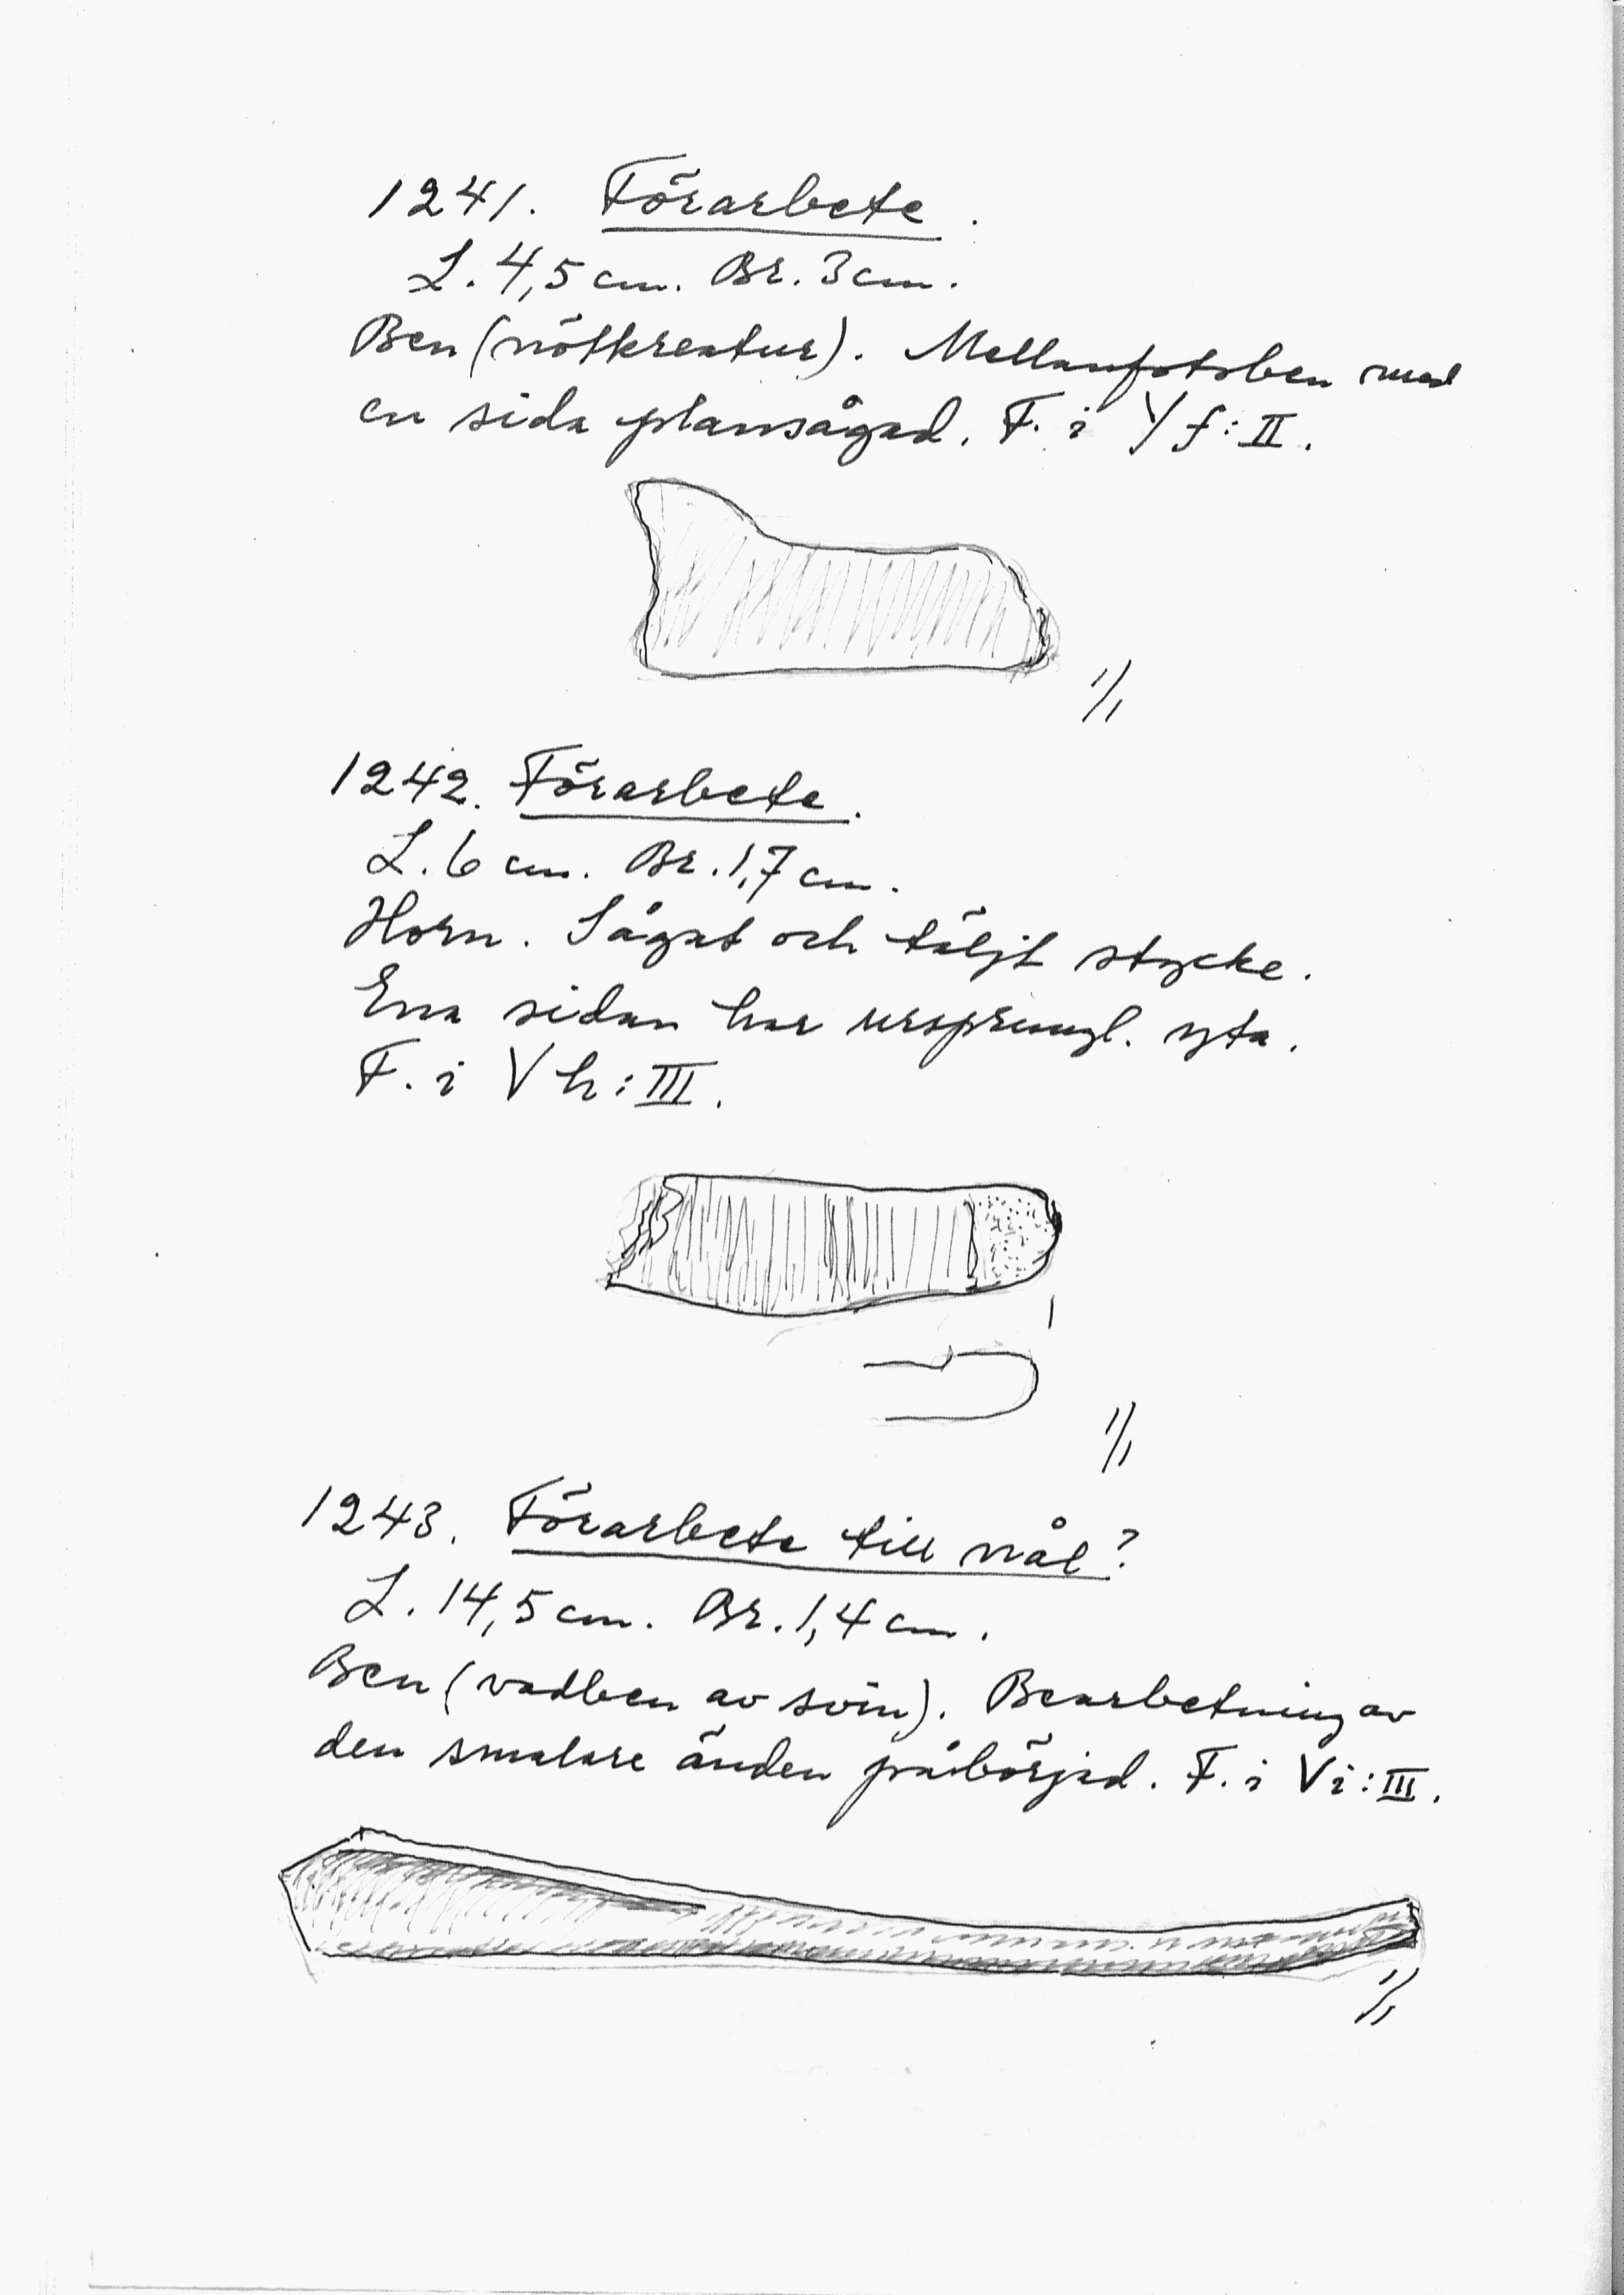 1241. Förarbete.
L. 4,5 cm. Br. 3 cm.
Ben (nötkreatur). Mellanfotsben med
en sida plansågad. F. i Y f: II.
1/1
1242. Förarbete.
L. 6 cm. Br. 1,7 cm.
Horn. Sågat och täljt stycke.
Ena sidan har ursprungl. yta.
F. i V h: III.
1/1
1243. Förarbete till nål?
L. 14,5 cm. Br. 1,4 cm.
Ben (vadben av svin). Bearbetning av
den smalare änden påbörjad. F. i V i: III.
1/1